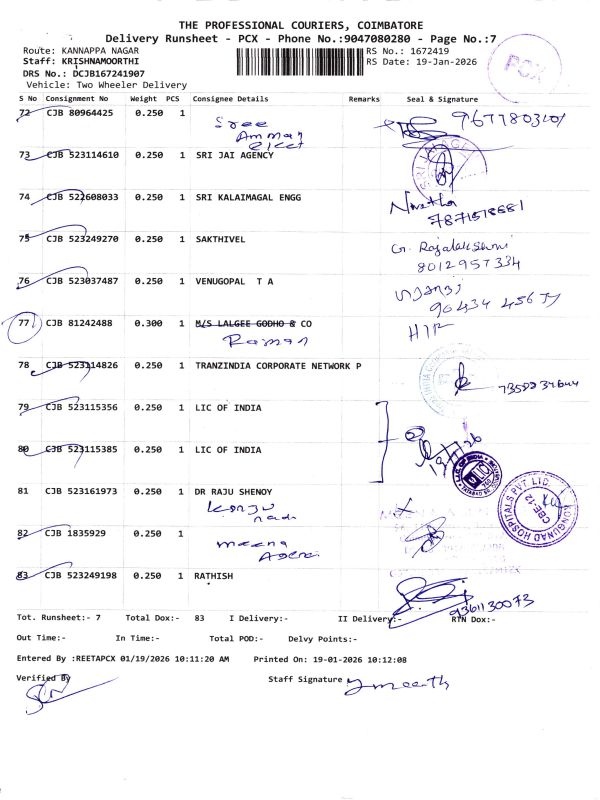 THE PROFESSIONAL COURIERS, COIMBATORE
Delivery Runsheet - PCX - Phone No.:9047080280 - Page No.:7
Route: KANNAPPA NAGAR
RS No.: 1672419
Staff: KRISHNAMOORTHI
RS Date: 19-Jan-2026
DRS No.: DCJB167241907
Vehicle: Two Wheeler Delivery
PCX
S No Consignment No Weight PCS Consignee Details Remarks Seal & Signature
72 CJB 80964425 0.250 1 Sree
Amman
Elect
73 CJB 523114610 0.250 1 SRI JAI AGENCY
74 CJB 522608033 0.250 1 SRI KALAIMAGAL ENGG
75 CJB 523249270 0.250 1 SAKTHIVEL G. Rajalakshmi
8012957334
76 CJB 523037487 0.250 1 VENUGOPAL T A
77 CJB 81242488 0.300 1 M/S LALGEE GODHO & CO
Raman
78 CJB 523114826 0.250 1 TRANZINDIA CORPORATE NETWORK P
79 CJB 523115356 0.250 1 LIC OF INDIA
80 CJB 523115385 0.250 1 LIC OF INDIA
LIC
81 CJB 523161973 0.250 1 DR RAJU SHENOY
KONGUNAD HOSPITALS PVT LTD.
CBE-12
82 CJB 1835929 0.250 1
meena
83 CJB 523249198 0.250 1 RATHISH
9361130073
Tot. Runsheet:- 7 Total Dox:- 83 I Delivery:- II Delivery:- RTN Dox:-
Out Time:- In Time:- Total POD:- Delvy Points:-
Entered By :REETAPCX 01/19/2026 10:11:20 AM Printed On: 19-01-2026 10:12:08
Verified By Staff Signature